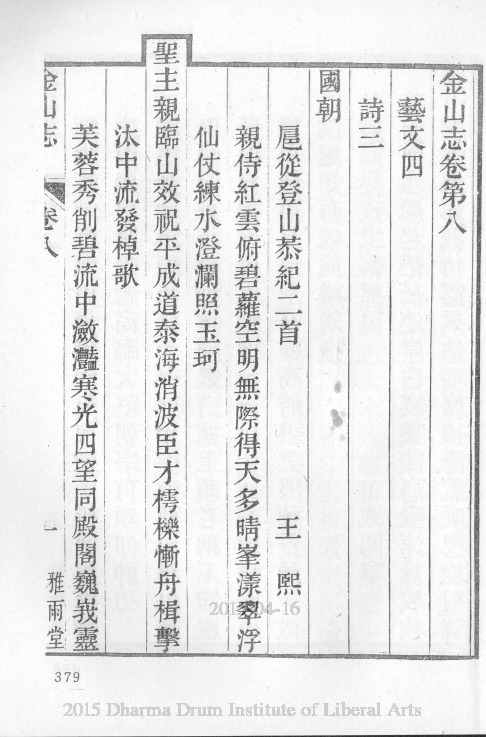 金山志卷第八
藝文四
詩三
國朝
扈從登山恭紀二首 王熙
親侍紅雲俯碧蘿空明無際得天多晴峯漾翠浮
仙仗練水澄瀾照玉珂
聖主親臨山效祝平成道泰海消波臣才樗櫟慚舟楫擊
汰中流發棹歌
芙蓉秀削碧流中瀲灩寒光四望同殿閣巍峩靈
金山志 卷八 一 雅雨堂
379
2015-04-16
2015 Dharma Drum Institute of Liberal Arts